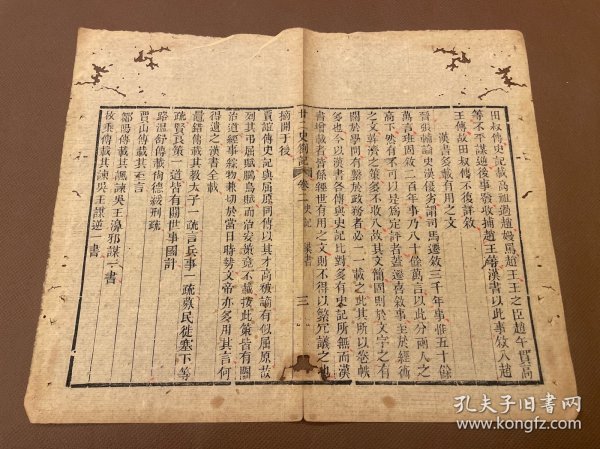 田叔傳史記載高祖過趙嫚罵趙王王之臣趙午貫高
等不平謀逆後事發收捕趙王等漢書以此事敘入趙
王傳故田叔傳不復詳敘
漢書多載有用之文
晉張輔論史漢優劣謂司馬遷敘三千年事惟五十餘
萬言班固敘二百年事乃八十餘萬言以此分兩人之
高下然有不可以是為定評者蓋遷喜敘事至於經術
之文幹濟之策多不收入故其文簡固則於文字之有
關於學問有繫於政務者必一一載之此其所以卷帙
多也今以漢書各傳與史記比對多有史記所無而漢
書增載者皆係經世有用之文則不得以繁冗議之也
廿二史劄記 卷二 史記 漢書 三
摘開于後
賈誼傳史記與屈原同傳以其才高被謫有似屈原故
列其弔屈賦鵩鳥賦而治安策竟不載按此策皆有關
治道經事綜物兼切於當日時勢文帝亦多用其言何
得遺之漢書全載
鼂錯傳載其教太子一疏言兵事一疏募民徙塞下等
疏賢良策一道皆有關世事國計
路溫舒傳載尚德緩刑疏
賈山傳載其至言
鄒陽傳載其諷諫吳王濞邪謀一書
枚乘傳載其諫吳王謀逆一書
孔夫子旧书网
www.kongfz.com